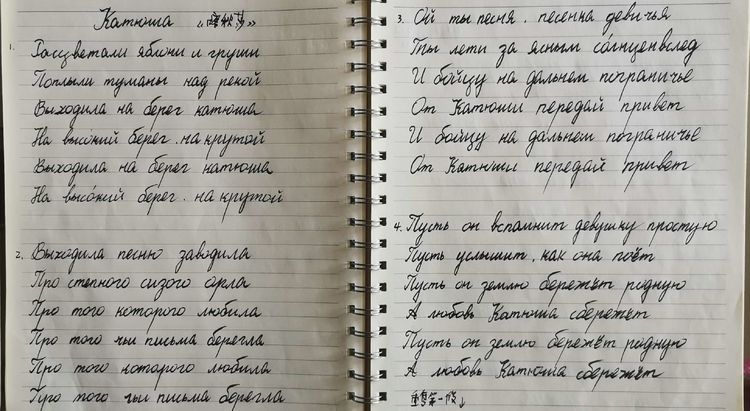 Катюша 《喀秋莎》
1. Расцветали яблони и груши
Поплыли туманы над рекой
Выходила на берег катюша
На высо́кий берег. на крутой
Выходила на берег катюша
На высо́кий берег. на крутой
2. Выходила песню заводила
Про степного сизого орла
Про того которого любила
Про того чьи письма берегла
Про того которого любила
Про того чьи письма берегла
3. Ой ты песня. песенка девичья
Ты лети за ясным со́лнцем вслед
И бойцу на дальнем пограничье
От Катюши передай привет
И бойцу на дальнем пограничье
От Катюши передай привет
4. Пусть он вспомнит девушку простую
Пусть услышит. как она поёт
Пусть он землю бережёт родную
А любовь Катюша сбережёт
Пусть он землю бережёт родную
А любовь Катюша сбережёт
重复第一段↓